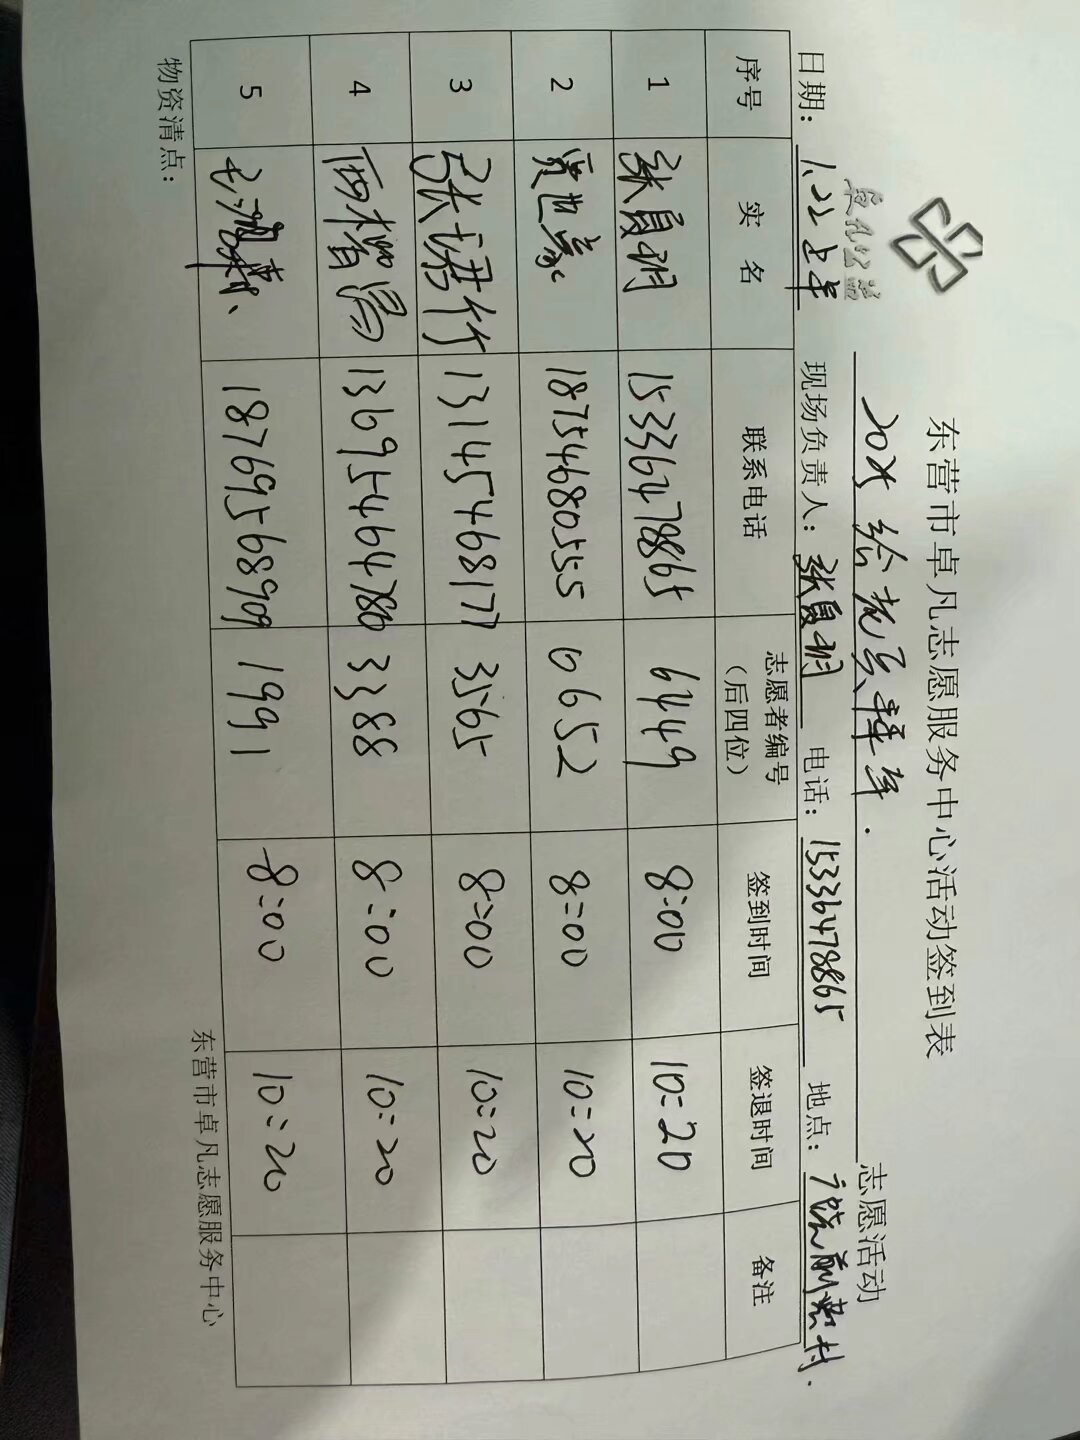 卓凡公益
东营市卓凡志愿服务中心活动签到表
2025给老人拜年. 志愿活动
日期: 1.22上午 现场负责人: 张夏明 电话: 15336478865 地点:
序号 实名 联系电话 志愿者编号（后四位） 签到时间 签退时间 备注
1 15336478865 6449 8:00 10:20
2 18754680555 0652 8:00 10:20
3 13145468177 3565 8:00 10:20
4 13695464780 3388 8:00 10:20
5 18769568909 1991 8:00 10:20
物资清点: 东营市卓凡志愿服务中心